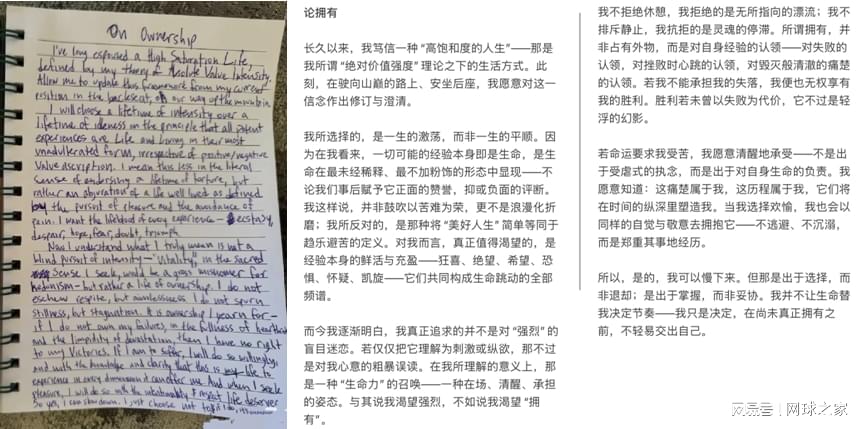 On Ownership
I've long espoused a High Saturation Life,
defined by my theory of Absolute Value Intensity.
Allow me to update this framework from my current
position in the backseat, on our way up the mountain.
I will choose a lifetime of intensity over a
lifetime of idleness on the principle that all potent
experiences are Life and Living in their most
unadulterated form, irrespective of positive/negative
Value ascription. I mean this less in the literal
sense of endorsing a lifetime of torture, but
rather an abjuration of a life well lived as defined
by the pursuit of pleasure and the avoidance of
pain. I want the lifeblood of every experience - ecstasy,
despair, hope, fear, doubt, triumph.
Now I understand what I truly mean is not a
blind pursuit of intensity - "Vitality," in the sacred
sense I seek, would be a gross misnomer for
hedonism - but rather a life of ownership. I do not
eschew respite, but aimlessness. I do not spurn
stillness, but stagnation. It is ownership I yearn for -
if I do not own my failures, in the fullness of heartbreak
and the limpidity of devastation, then I have no right
to my Victories. If I am to suffer, I will do so willingly,
and with the knowledge and clarity that this is my life to
experience in every dimension it can offer me. And when I seek
pleasure, I will do so with the intentionality & respect life deserves.
So yes, I can slow down. I just choose not to
论拥有
长久以来，我笃信一种“高饱和度的人生”——那是
我所谓“绝对价值强度”理论之下的生活方式。此
刻，在驶向山巅的路上、安坐后座，我愿意对这一
信念作出修订与澄清。
我所选择的，是一生的激荡，而非一生的平顺。因
为在我看来，一切可能的经验本身即是生命，是生
命在最未经稀释、最不加粉饰的形态中显现——不
论我们事后赋予它正面的赞誉，抑或负面的评断。
我这样说，并非鼓吹以苦难为荣，更不是浪漫化折
磨；我所反对的，是那种将“美好人生”简单等同于
趋乐避苦的定义。对我而言，真正值得渴望的，是
经验本身的鲜活与充盈——狂喜、绝望、希望、恐
惧、怀疑、凯旋——它们共同构成生命跳动的全部
频谱。
而今我逐渐明白，我真正追求的并不是对“强烈”的
盲目迷恋。若仅仅把它理解为刺激或纵欲，那不过
是对我心意的粗暴误读。在我所理解的意义上，那
是一种“生命力”的召唤——一种在场、清醒、承担
的姿态。与其说我渴望强烈，不如说我渴望“拥
有”。
我不拒绝休憩，我拒绝的是无所指向的漂流；我不
排斥静止，我抗拒的是灵魂的停滞。所谓拥有，并
非占有外物，而是对自身经验的认领——对失败的
认领，对挫败时心跳的认领，对毁灭般清澈的痛楚
的认领。若我不能承担我的失落，我便也无权享有
我的胜利。胜利若未曾以失败为代价，它不过是轻
浮的幻影。
若命运要求我受苦，我愿意清醒地承受——不是出
于受虐式的执念，而是出于对自身生命的负责。我
愿意知道：这痛楚属于我，这历程属于我，它们将
在时间的纵深里塑造我。当我选择欢愉，我也会以
同样的自觉与敬意去拥抱它——不逃避、不沉溺，
而是郑重其事地经历。
所以，是的，我可以慢下来。但那是出于选择，而
非退却；是出于掌握，而非妥协。我并不让生命替
我决定节奏——我只是决定，在尚未真正拥有之
前，不轻易交出自己。
网易号 | 网球之家